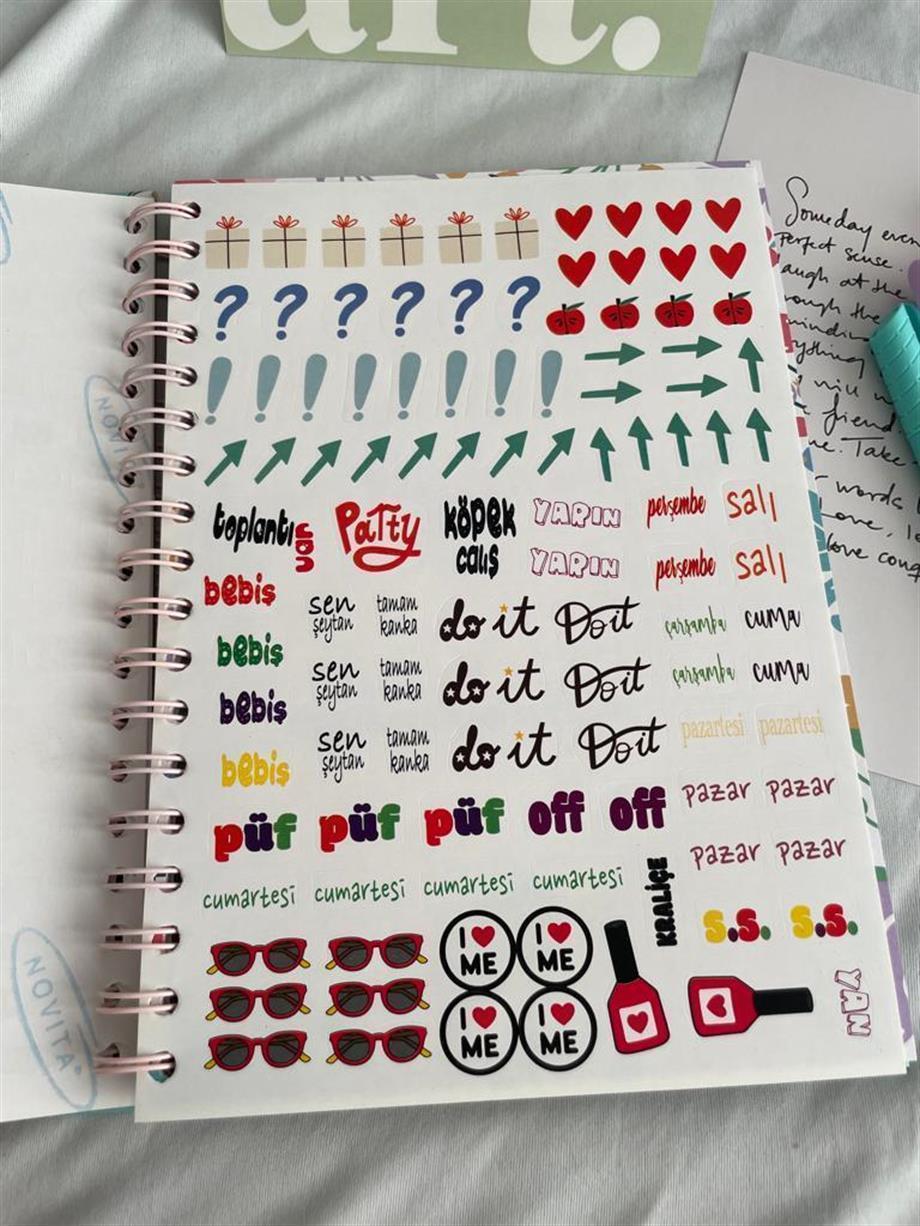 art.
Someday
Perfect sense.
laugh at the
the
friend.
Take
words
Love,
love
? ? ? ? ? ?
! ! ! ! ! ! ! !
toplantı var Party köpek YARIN perşembe salı
çalış YARIN perşembe salı
bebiş sen şeytan tamam kanka do it Do it çarşamba cuma
bebiş sen şeytan tamam kanka do it Do it çarşamba cuma
bebiş sen şeytan tamam kanka do it Do it pazartesi pazartesi
bebiş
püf püf püf off off pazar pazar
pazar pazar
cumartesi cumartesi cumartesi cumartesi KRALİÇE s.s. s.s.
I ME I ME
I ME I ME
YAN
NOVI
NOVITA